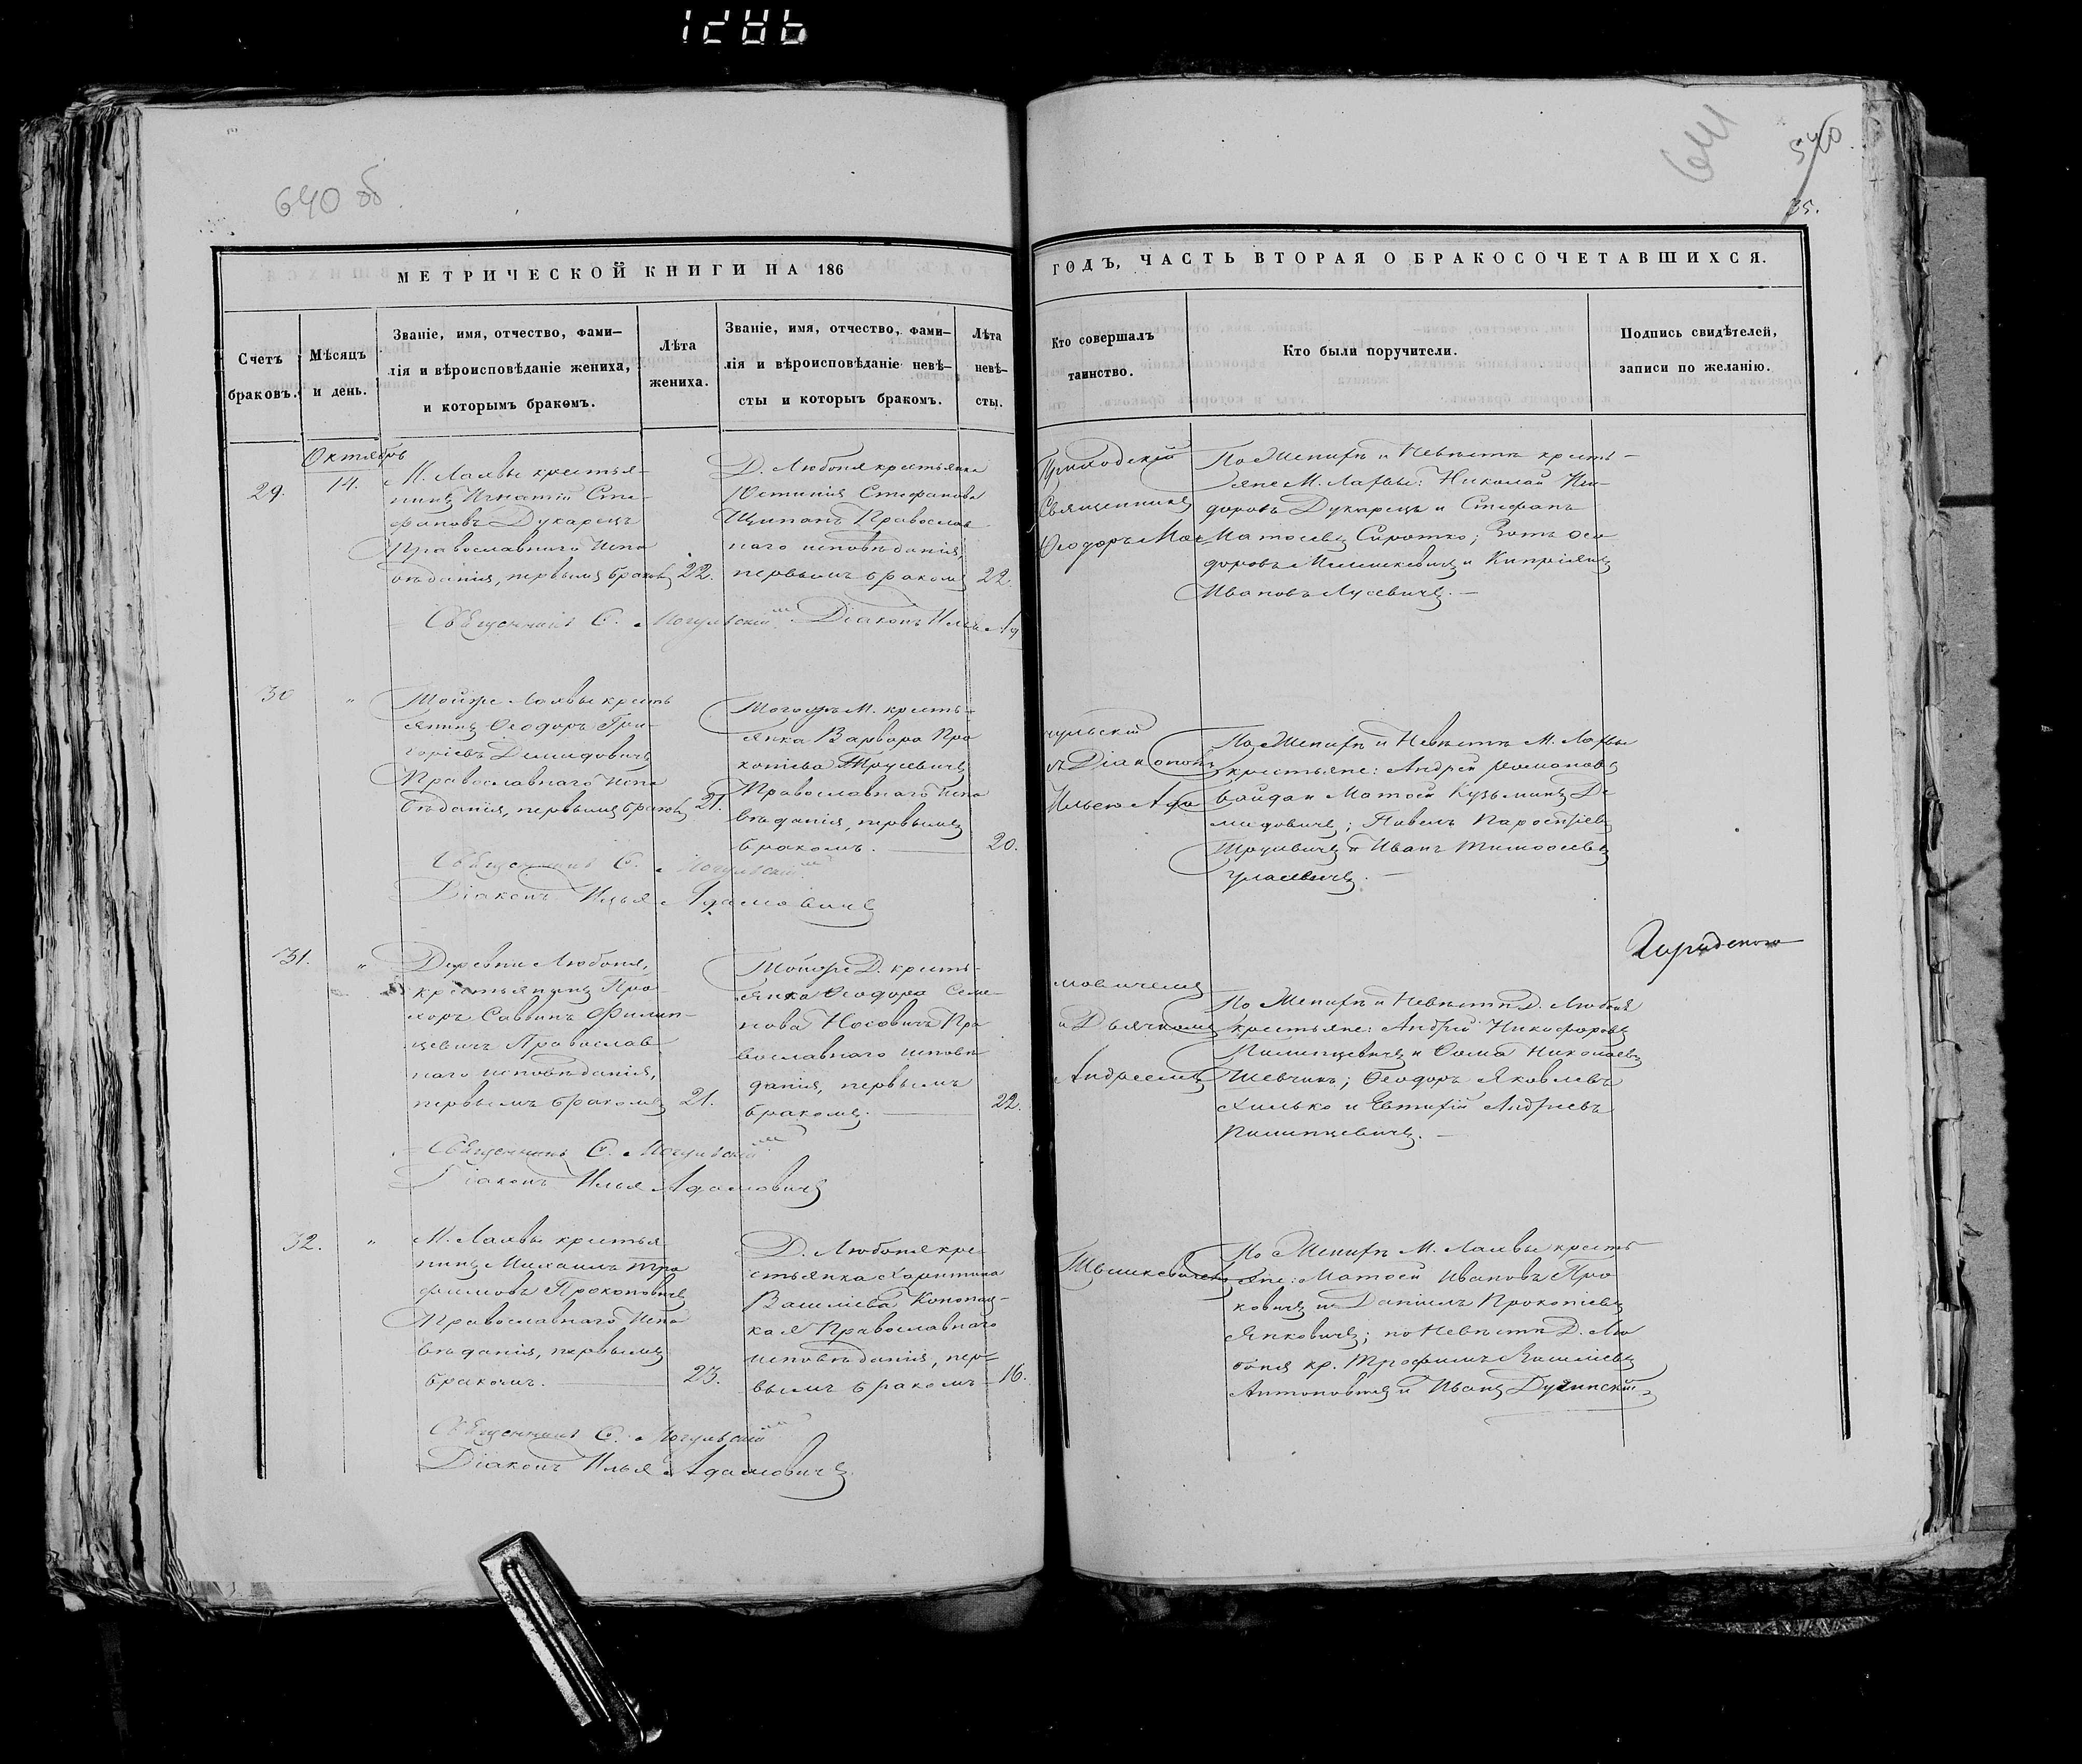 640 об
641
540
35.
МЕТРИЧЕСКОЙ КНИГИ НА 186
ГОДЪ, ЧАСТЬ ВТОРАЯ О БРАКОСОЧЕТАВШИХСЯ.
Счетъ браковъ.
Мѣсяцъ и день.
Званіе, имя, отчество, фами-
лія и вѣроисповѣданіе жениха,
и которымъ бракомъ.
Лѣта
жениха.
Званіе, имя, отчество, фами-
лія и вѣроисповѣданіе невѣ-
сты и которыъ бракомъ.
Лѣта
невѣ-
сты.
Кто совершалъ
таинство.
Кто были поручители.
Подпись свидѣтелей,
записи по желанію.
Октябрь
29.
14.
М. Лахвы крестья-
нинъ Игнатій Сте-
фановъ Дукарецъ
Православнаго испо
вѣданія, первымъ бракомъ
22.
Д. Любоня крестьянка
Юстинія Стефанова
Православ
наго исповѣданія,
первымъ бракомъ
22.
Приходскій
Священникъ
Ѳеодоръ Мог
По Женихѣ и Невѣстѣ кресть-
яне М. Лахвы: Николай
доровъ Дукарецъ и Стефанъ
Матѳеевъ Сиротко; Зотъ Ѳео
доровъ и Кипріянъ
Ивановъ Лусевичъ.
Священникъ Ѳ. Могульскій Діаконъ Илья Ад
30
"
Тойже Лахвы кресть
янинъ Ѳеодоръ Гри-
горіевъ Демидовичъ
Православнаго испо
вѣданія, первымъ бракомъ
21.
Тогожъ М. кресть-
янка Варвара Про
копіева Трусевичъ
Православнаго испо
вѣданія, первымъ
бракомъ.
20.
гульскій
съ Діакономъ
Ильею Ада
По Женихѣ и Невѣстѣ М. Лахвы
крестьяне: Андрей Романовъ
Матѳей Кузьминъ Де
мидовичъ; Павелъ
и Иванъ Тимоѳеевъ
Священникъ Ѳ. Могульскій
Діаконъ Илья Адамовичъ
31.
"
Деревни Любоня,
крестьянинъ Про-
хоръ Саввинъ Филип-
цевичъ Православ
наго исповѣданія,
первымъ бракомъ
21.
Тойже Д. кресть-
янка Ѳеодора Семе-
нова Носовичъ Пра
вославнаго исповѣ
данія, первымъ
бракомъ.
22.
мовичемъ
и Дьячкомъ
Андреемъ
По Женихѣ и Невѣстѣ Д. Любоня
крестьяне: Андрей Никифоровъ
Пилипцевичъ и Ѳома Николаевъ
Шевчикъ; Ѳеодоръ Яковлевъ
Хилько и Евтихій Андреевъ
Пилипцевичъ.
Священникъ Ѳ. Могульскій
Діаконъ Илья Адамовичъ
32.
"
М. Лахвы крестья
нинъ Михаилъ Тро
фимовъ Прокоповичъ
Православнаго Испо
вѣданія, первымъ
бракомъ.
23.
Д. Любоня кре
стьянка Харитина
Василіева Конопац-
кая Православнаго
исповѣданія, пер-
вымъ бракомъ
16.
По Женихѣ М. Лахвы кресть
яне: Матѳей Ивановъ Про
ковичъ и Даніилъ Прокопіевъ
Янковичъ; по Невѣстѣ Д. Лю
боня кр. Трофимъ Василіевъ
Антоновичъ и Иванъ
Священникъ Ѳ. Могульскій
Діаконъ Илья Адамовичъ